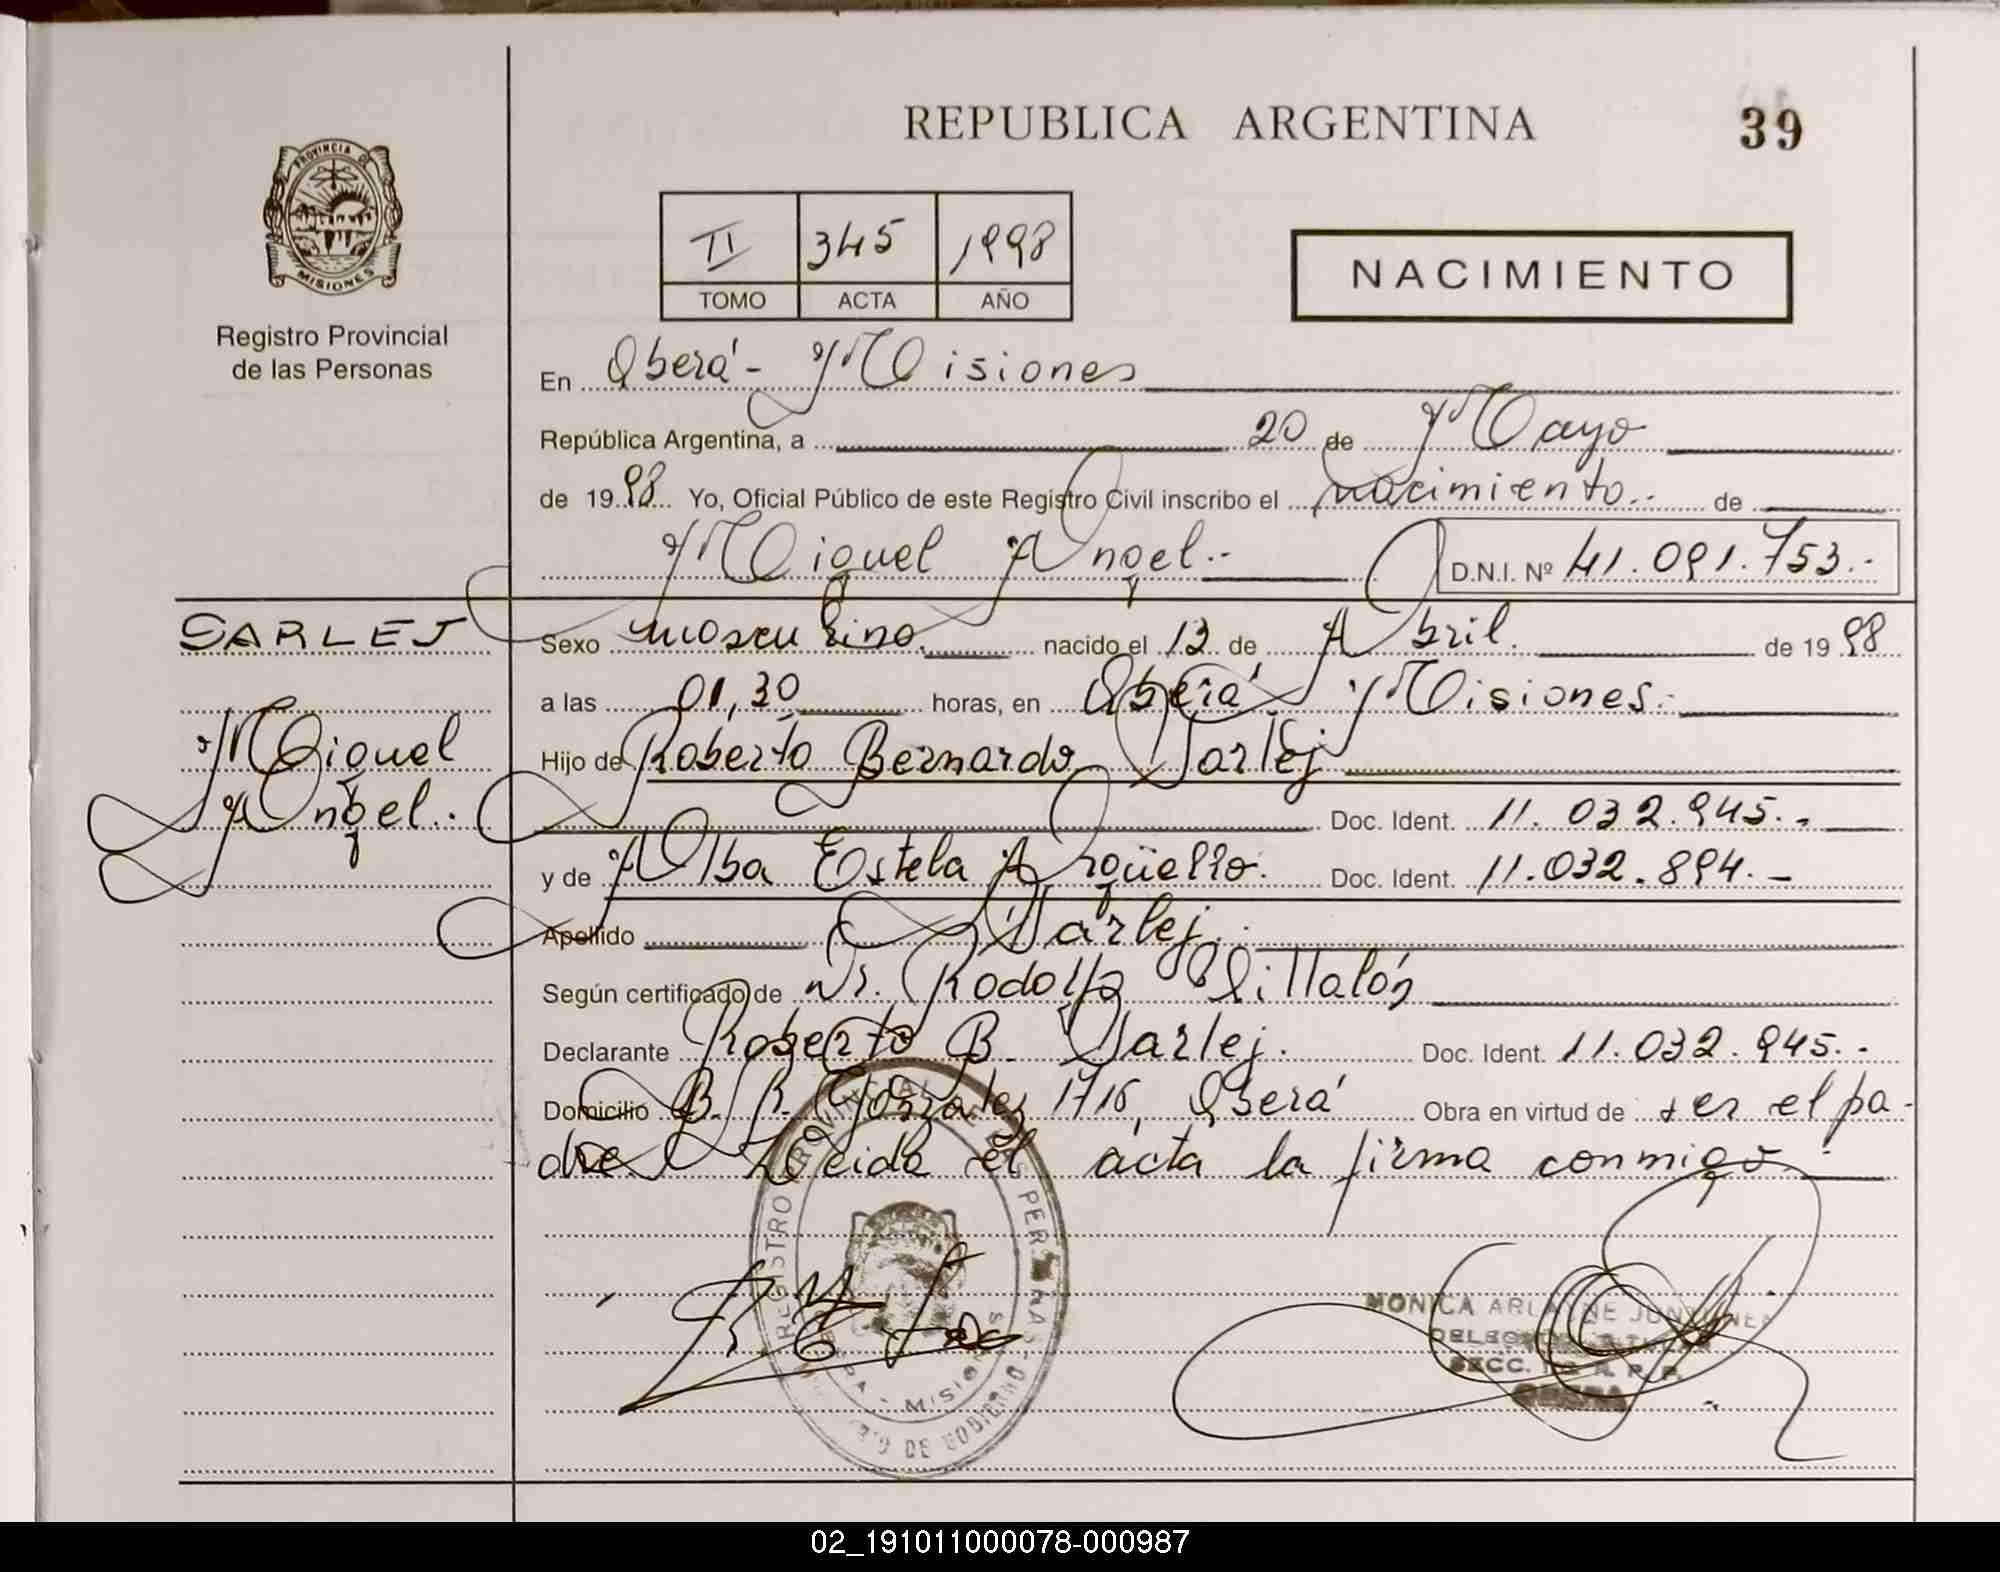 REPUBLICA ARGENTINA
39
PROVINCIA DE
MISIONES
Registro Provincial
de las Personas
II 345 1998
TOMO ACTA AÑO
NACIMIENTO
En Oberá - Misiones
República Argentina, a 20 de Mayo
de 1998 Yo, Oficial Público de este Registro Civil inscribo el nacimiento.. de
Miguel Angel.-
D.N.I. Nº 41.091.753.-
SARLEJ
Miguel
Angel.-
Sexo masculino. nacido el 13 de Abril. de 1998
a las 01,30 horas, en Oberá Misiones.
Hijo de Roberto Bernardo Sarlej
Doc. Ident. 11.032.945.-
y de Alba Estela Argüello. Doc. Ident. 11.032.894.-
Apellido Sarlej.-
Según certificado de Dr. Rodolfo Villalón
Declarante Roberto B. Sarlej. Doc. Ident. 11.032.945.-
Domicilio B. R. Gonzalez 1716, Oberá Obra en virtud de ser el pa-
dre Leida el acta la firma conmigo.-
REGISTRO PROVINCIAL DE LAS PERSONAS
MISIONES
DE GOBIERNO
MONICA
SECC.
02_191011000078-000987